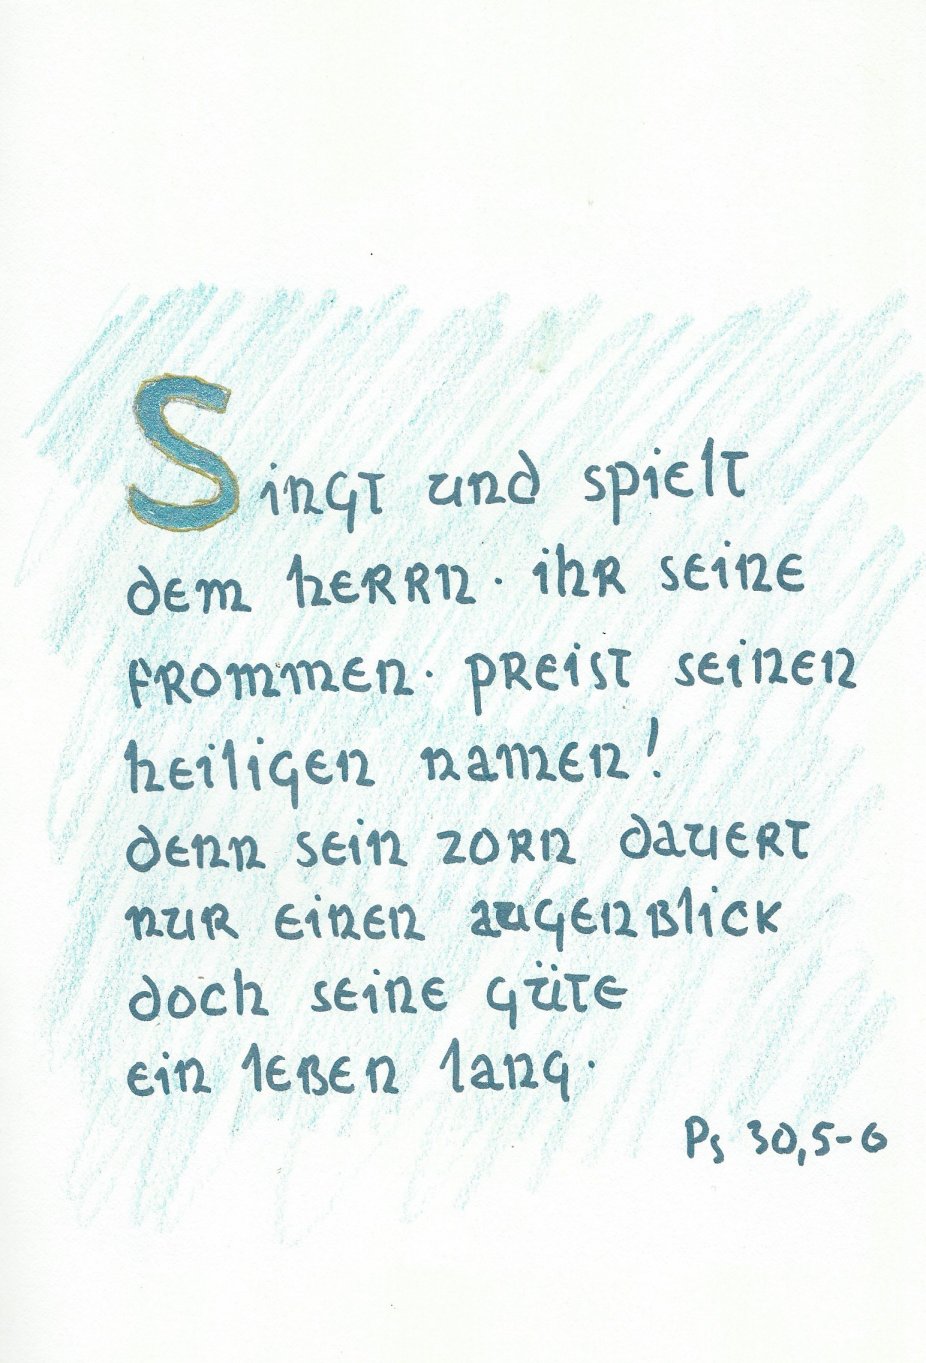 Singt und spielt
dem herrn · ihr seine
frommen · preist seinen
heiligen namen!
denn sein zorn dauert
nur einen augenblick
doch seine güte
ein leben lang ·
Ps 30,5-6